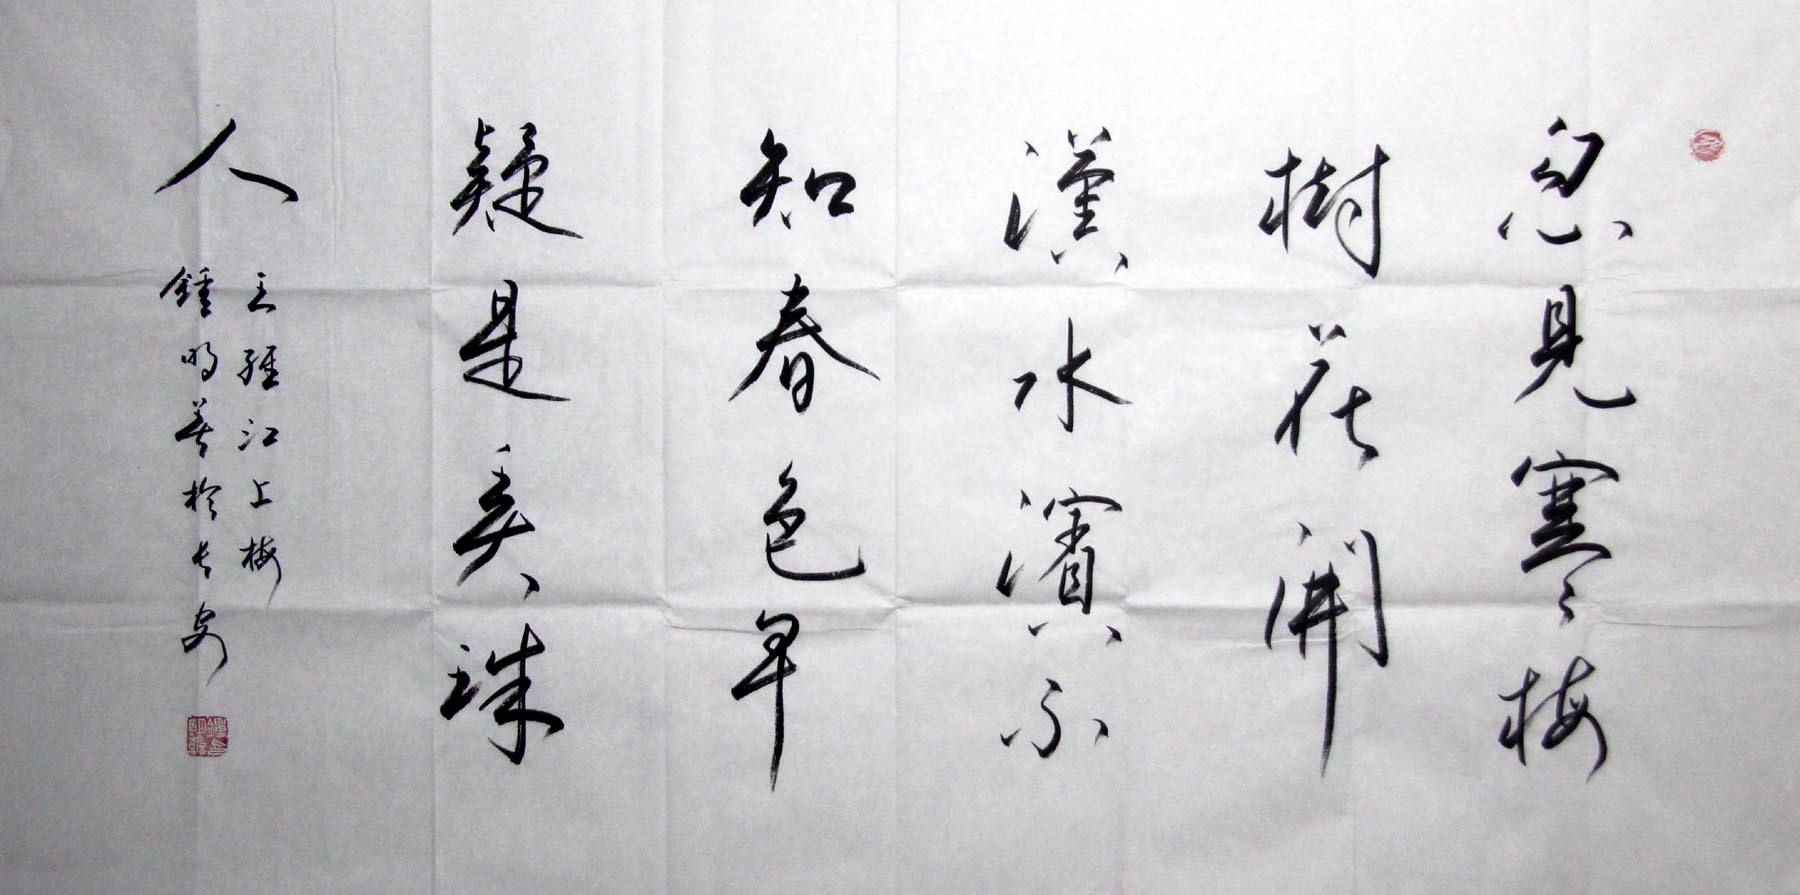 忽見寒梅
樹花開
漢水濱不
知春色早
疑是弄珠
人
王經江上梅
鍾明善於長安